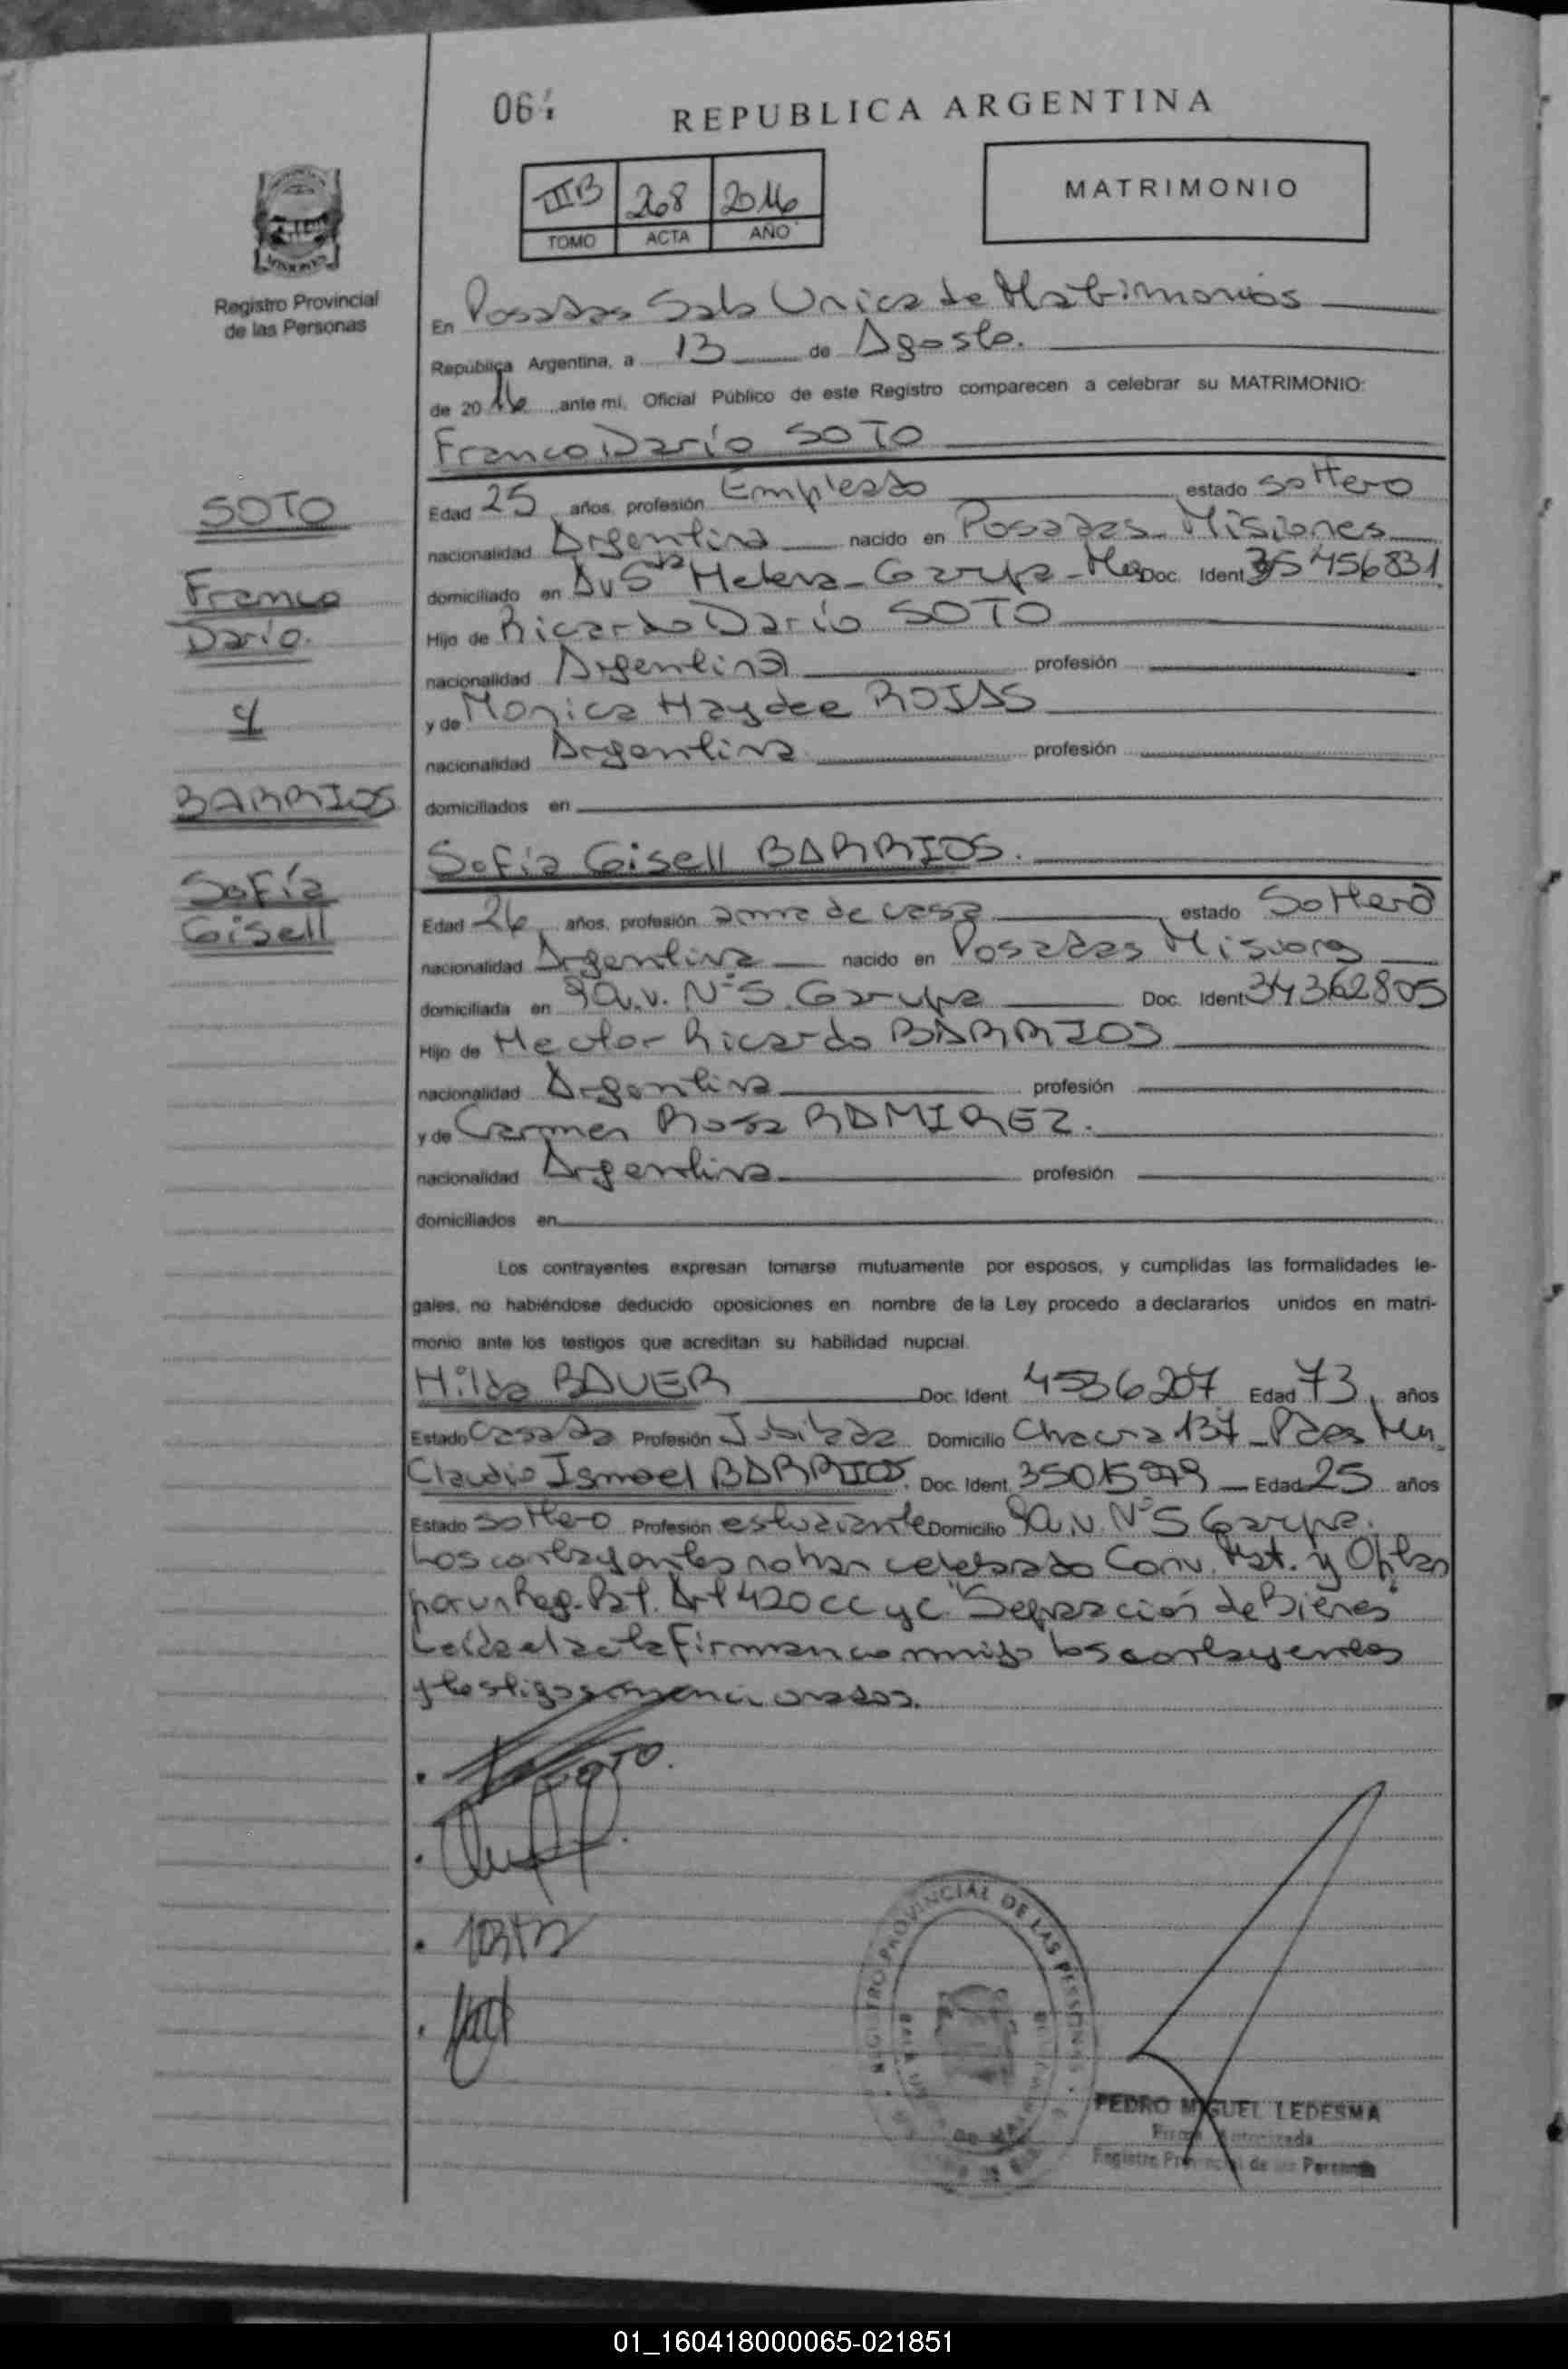 06
REPUBLICA ARGENTINA
IIIB 268 2016
TOMO ACTA AÑO
MATRIMONIO
Registro Provincial
de las Personas
En Posadas Sala Unica de Matrimonios
República Argentina, a 13 de Agosto.
de 2016 ante mi, Oficial Público de este Registro comparecen a celebrar su MATRIMONIO:
Franco Darío SOTO
SOTO
Franco
Darío.
y
BARRIOS
Sofía
Gisell
Edad 25 años, profesión Empleado estado soltero
nacionalidad Argentina nacido en Posadas Misiones
domiciliado en Av Sta Helena - Garupa - Mes Doc. Ident 35456831
Hijo de Ricardo Darío SOTO
nacionalidad Argentina profesión
y de Monica Haydee ROJAS
nacionalidad Argentina profesión
domiciliados en
Sofía Gisell BARRIOS.
Edad 26 años, profesión ama de casa estado Soltera
nacionalidad Argentina nacido en Posadas Misiones
domiciliada en Nº5 Garupa Doc. Ident 34362805
Hijo de Hector Ricardo BARRIOS
nacionalidad Argentina profesión
y de Carmen Rosa RAMIREZ.
nacionalidad Argentina profesión
domiciliados en
Los contrayentes expresan tomarse mutuamente por esposos, y cumplidas las formalidades le-
gales, no habiéndose deducido oposiciones en nombre de la Ley procedo a declararlos unidos en matri-
monio ante los testigos que acreditan su habilidad nupcial.
Hilda BAUER Doc. Ident 4536207 Edad 73 años
Estado Casada Profesión Jubilada Domicilio Chacra 137 - Pdas
Claudio Ismael BARRIOS. Doc. Ident 35015979 Edad 25 años
Estado soltero Profesión estudiante Domicilio Nº5 Garupa.
Los contrayentes no han celebrado Conv. Mat. y Optan
por un Reg. Pat. Art 420 CC y C. "Separacion de Bienes"
Leida el acta firman conmigo los contrayentes
y testigos mencionados.
SOTO.
REGISTRO PROVINCIAL DE LAS PERSONAS
PEDRO MIGUEL LEDESMA
Firma Autorizada
Registro Provincial de las Personas
01_160418000065-021851